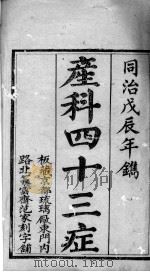 同治戊辰年鐫
產科四十三症
板藏京都琉璃廠東門內
路北龍雲齋沈家刻字鋪